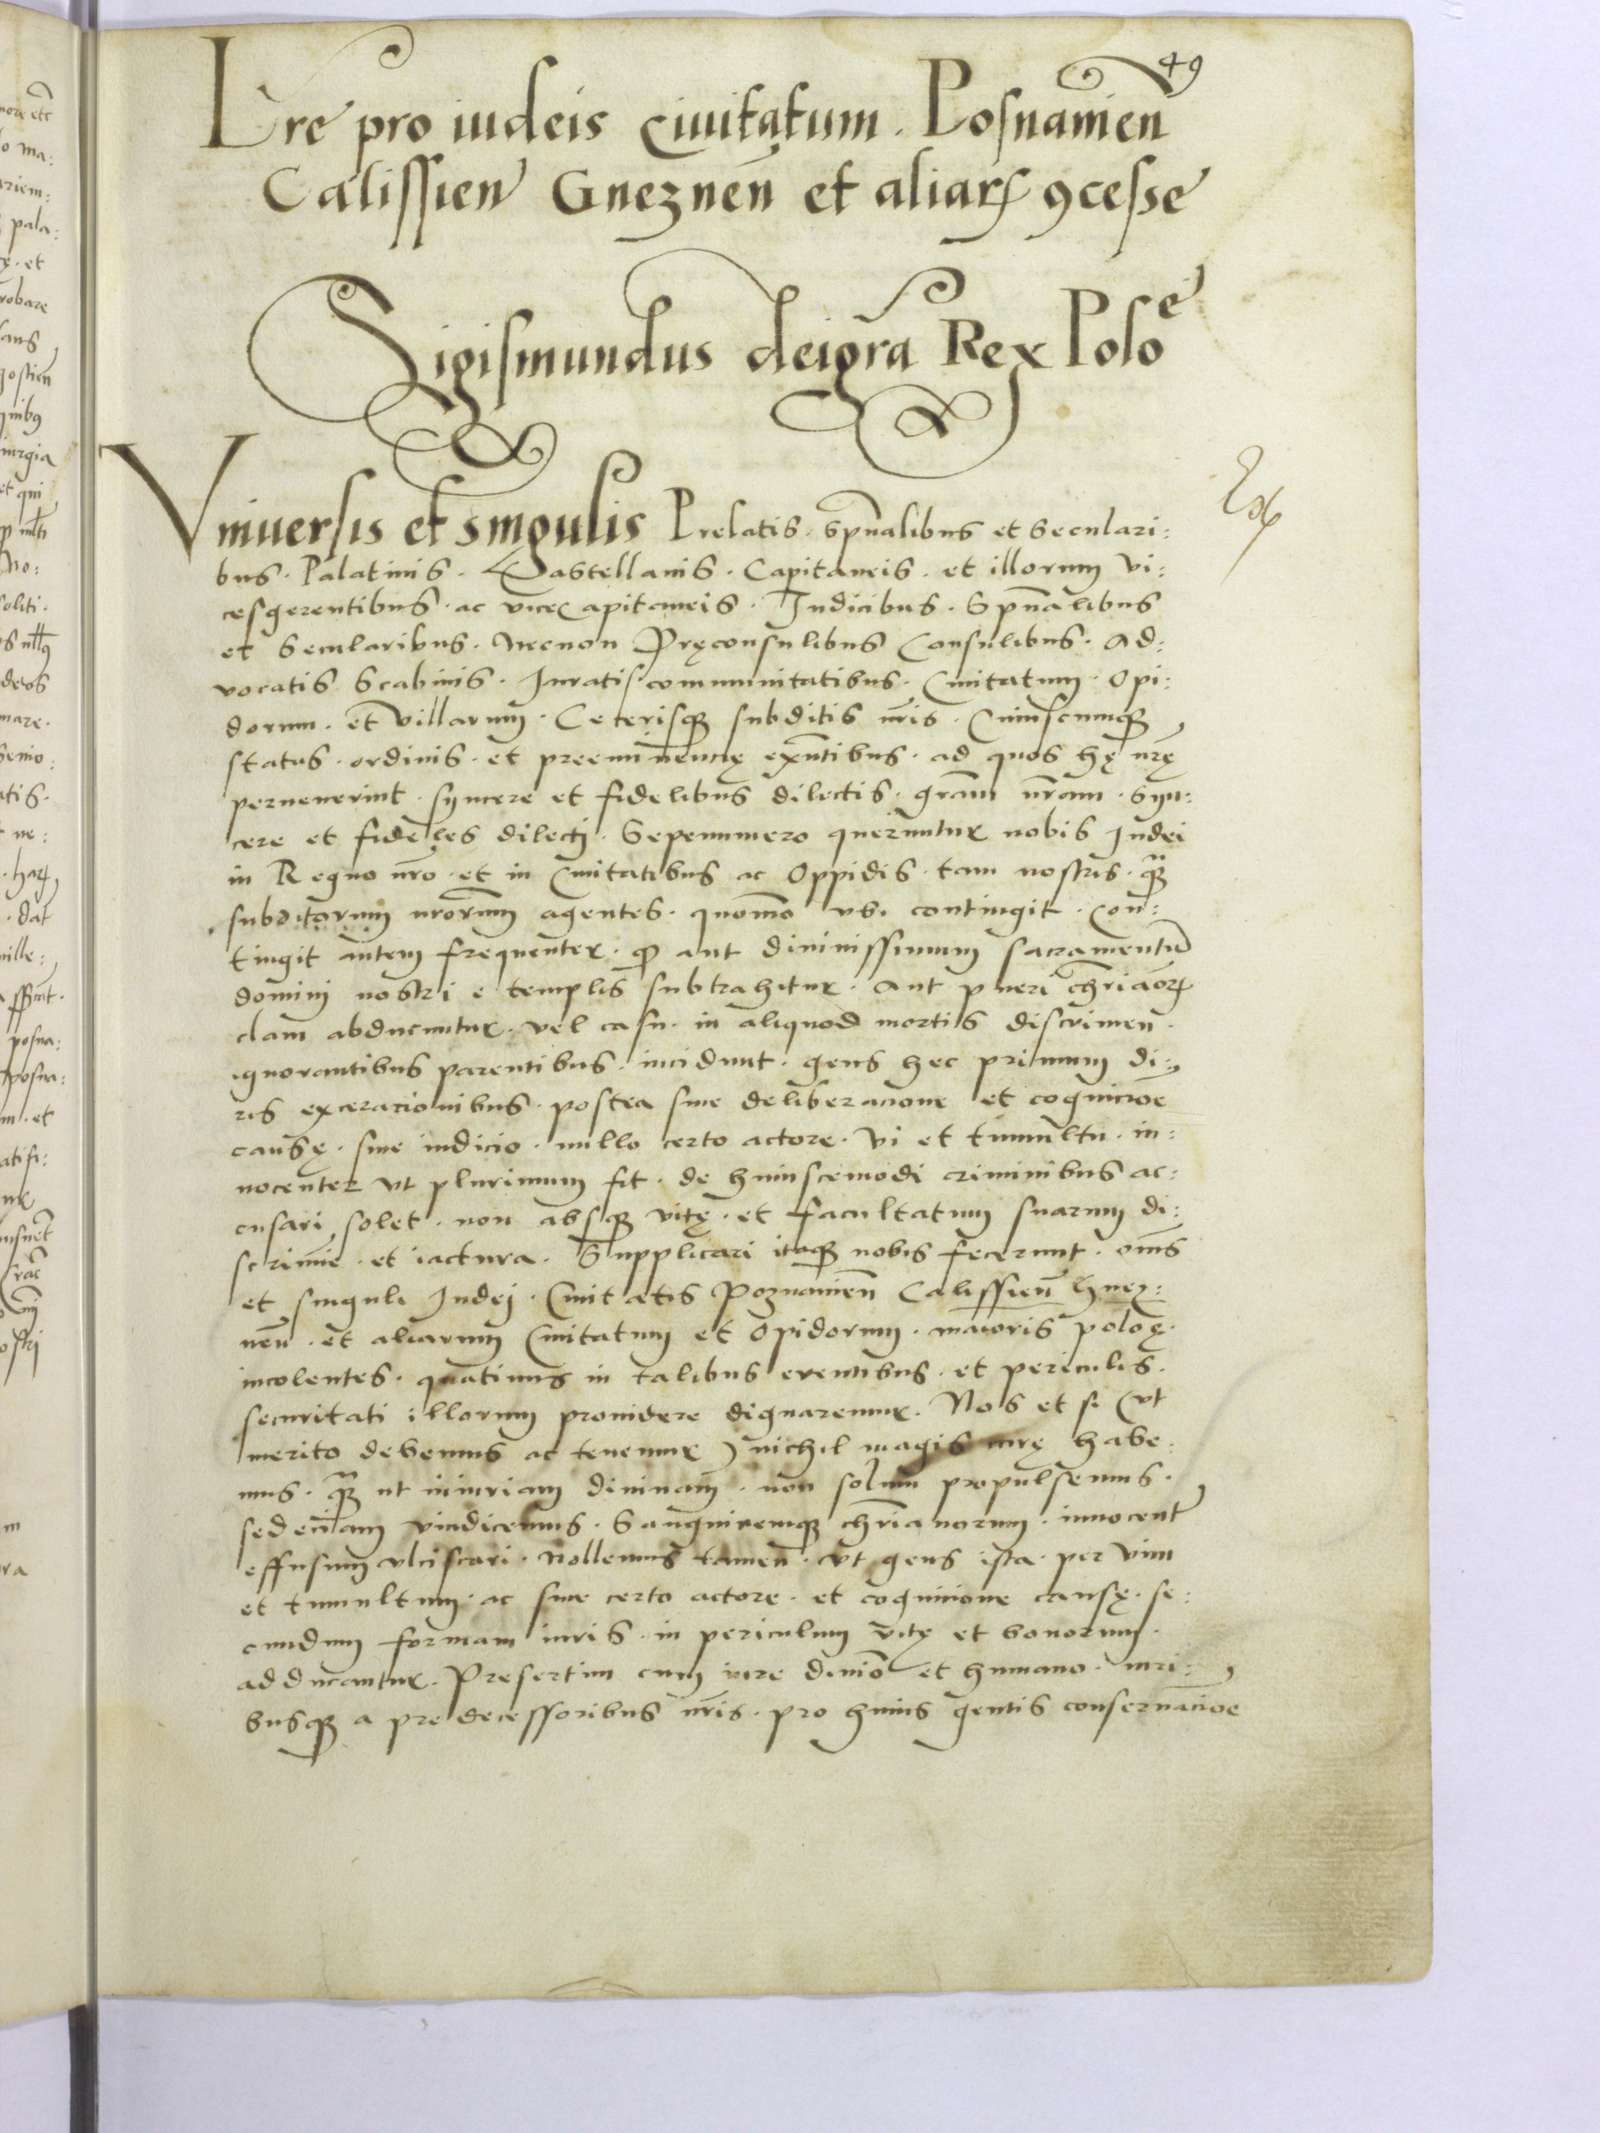 49
Lre pro iudeis ciuitatum . Posnamien
Calissien Gneznen et aliarꝝ ꝯcesse
Sigismundus dei gra Rex Poloe
Vniuersis et singulis Prelatis . spualibus et seculari:
bus . Palatinis . Castellanis . Capitaneis . et illorum vi:
cesgerentibus . ac vicecapitaneis . Iudicibus . Spualibus
et Secularibus . Necnon Pręconsulibus Consulibus . Ad:
vocatis Scabinis . Iuratis communitatibus . Ciuitatum . Opi:
dorum . et villarum . Ceterisqꝫ subditis nris . Cuiuscunqꝫ
status . ordinis . et preeminencię exntibus . ad quos hę nrę
peruenerint . syncere et fidelibus dilectis . gram nram . Syn:
cere et fideles dilecti . Sepenumero queruntur nobis Iudei
in Regno nro . et in Ciuitatibus ac Oppidis . tam nostris . qꝫ
subditorum nrorum agentes . quomo vbi contingit . Con:
tingit autem frequenter . qꝫ aut diuinissimum sacramentu
domini nostri e templis subtrahitur . Aut pueri chrianorꝝ
clam abducuntur . vel casu . in aliquod mortis discrimen .
ignorantibus parentibus . incidunt . gens hec primum di:
ris execracionibus . postea sine deliberacione et cognicioe
causę . sine iudicio . nullo certo actore . vi et tumultu . in:
nocenter vt plurimum fit . de huiuscemodi criminibus ac:
cusari solet . non absqꝫ vitę . et facultatum suarum di:
scrimine . et iactura . Supplicari itaqꝫ nobis fecerunt . oms
et singuli Iudei . Ciuitatis Poznanien Calissien Gnez:
nen . et aliarum Ciuitatum et Opidorum . maioris poloę .
incolentes . quatinus in talibus euentibus . et periculis .
securitati illorum prouidere dignaremur . Nos et si (vt
merito debemus ac tenemur) nichil magis curę habe:
mus . qꝫ ut iniuriam diuinam . non solum propulsemus .
sed eciam vindicemus . Sanguinemqꝫ chrianorum . innocent
effusum vlciscari . Nollemus tamen . vt gens ista . per vim
et tumultum . ac sine certo actore . et cognicione causę . se:
cundum formam iuris . in periculum vitę et bonorum .
adducantur . Presertim cum iure diuino et humano . iuri:
busqꝫ a predecessoribus nris . pro huius gentis conseruacioe